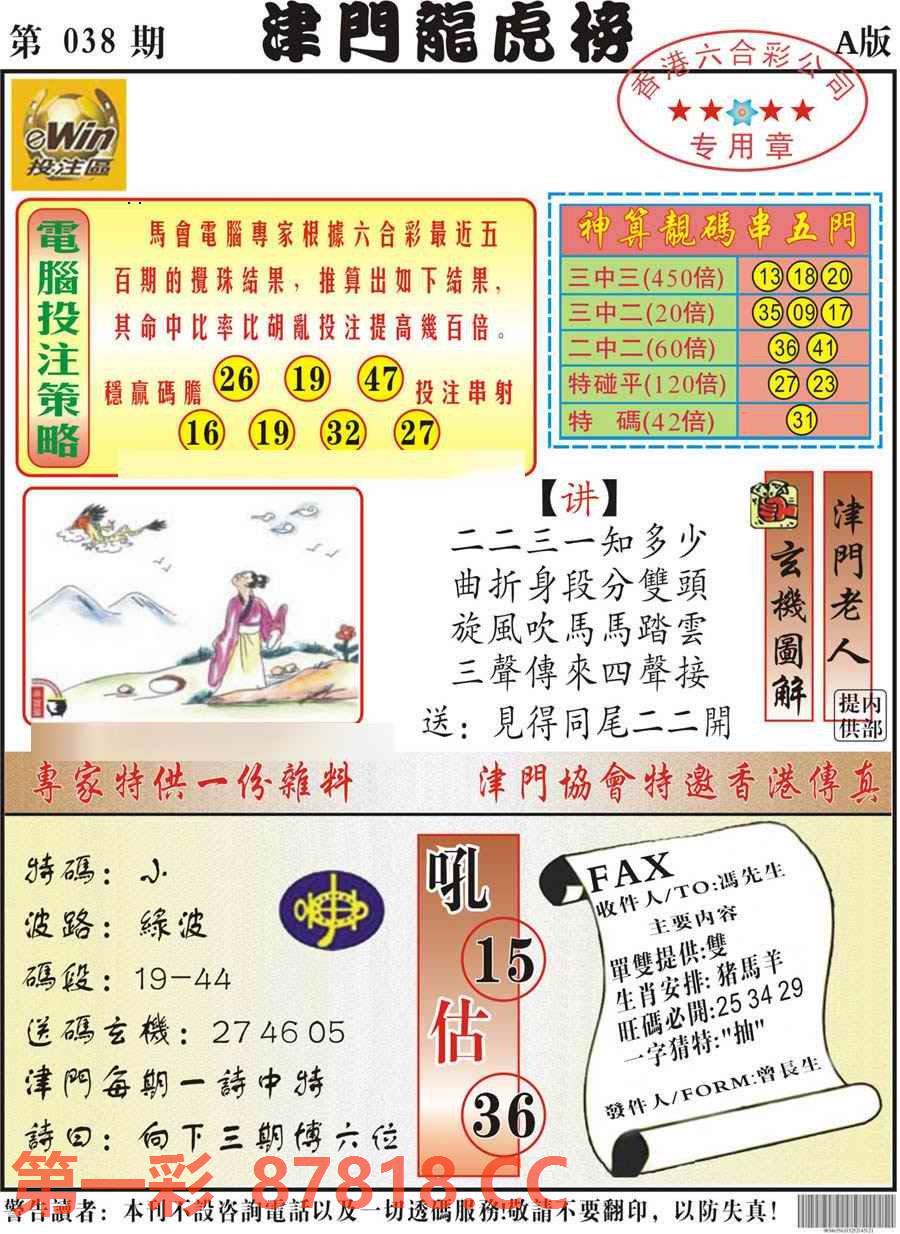 第 038 期
津門龍虎榜
A版
香港六合彩公司
专用章
eWin
投注區
電腦投注策略
馬會電腦專家根據六合彩最近五
百期的攪珠結果，推算出如下結果，
其命中比率比胡亂投注提高幾百倍。
穩贏碼膽 26 19 47 投注串射
16 19 32 27
神算靚碼串五門
三中三(450倍) 13 18 20
三中二(20倍) 35 09 17
二中二(60倍) 36 41
特碰平(120倍) 27 23
特 碼(42倍) 31
【讲】
二二三一知多少
曲折身段分雙頭
旋風吹馬馬踏雲
三聲傳來四聲接
送：見得同尾二二開
玄機圖解
津門老人
内部提供
專家特供一份雜料
津門協會特邀香港傳真
特碼：小
波路：綠波
碼段：19-44
送碼玄機：27 46 05
津門每期一詩中特
詩曰：向下三期博六位
吼
15
估
36
FAX
收件人/TO:馮先生
主要内容
單雙提供:雙
生肖安排:豬馬羊
旺碼必開:25 34 29
一字猜特:"抽"
發件人/FORM:曾長生
第一彩 87818.CC
警告讀者：本刊不設咨詢電話以及一切透碼服務!敬請不要翻印，以防失真!